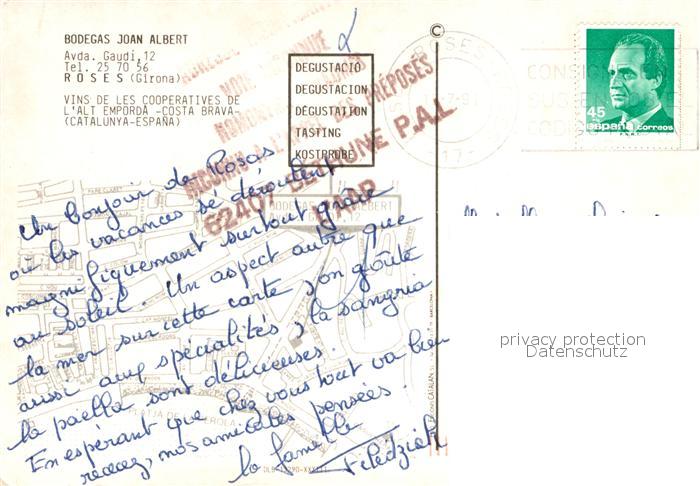 BODEGAS JOAN ALBERT
Avda. Gaudí,12
Tel. 25 70 56
ROSES (Girona)
VINS DE LES COOPERATIVES DE
L'ALT EMPORDÀ -COSTA BRAVA-
(CATALUNYA-ESPAÑA)
DEGUSTACIÓ
DEGUSTACION
DÉGUSTATION
TASTING
KOSTPROBE
©
ROSES
45
españa correos
PRÉPOSÉS
62407 BETHUNE P.A.L
BODEGAS JOAN ALBERT
Un bonjour de Rosas
où les vacances se déroulent
magnifiquement surtout grâce
au soleil. Un aspect autre que
la mer sur cette carte, on goûte
aussi aux spécialités, la sangria
la paella sont délicieuses.
En espérant que chez vous tout va bien
recevez, nos amicales pensées.
la famille
PLATJA DE
privacy protection
Datenschutz